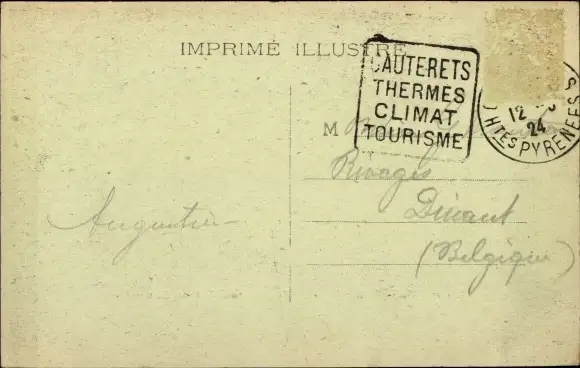 IMPRIMÉ ILLUSTRÉ
CAUTERETS
THERMES
CLIMAT
TOURISME
12
24
HTES PYRENEES
M
Rivages
Dinant
(Belgique)
Augustin